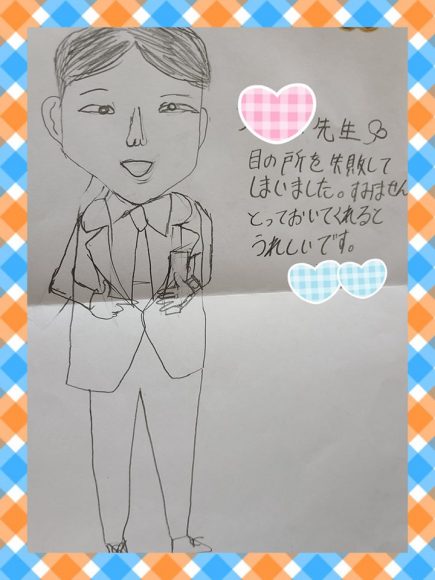 先生
目の所を失敗して
しまいました。すみません
とっておいてくれると
うれしいです。